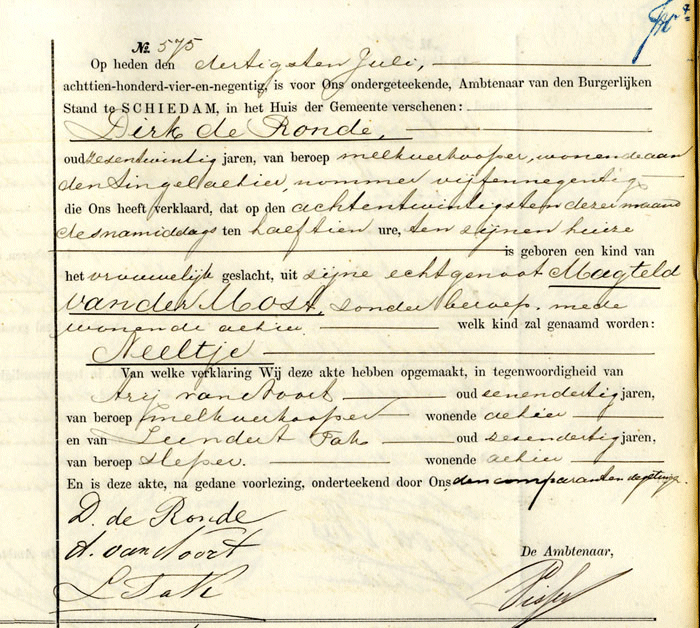 No. 575
Op heden den dertigsten Juli,
achttien-honderd-vier-en-negentig, is voor Ons ondergeteekende, Ambtenaar van den Burgerlijken
Stand te SCHIEDAM, in het Huis der Gemeente verschenen:
Dirk de Ronde,
oud zesentwintig jaren, van beroep melkverkooper, wonende aan
den Singel alhier, nommer vijfennegentig
die Ons heeft verklaard, dat op den achtentwintigsten dezer maand
des namiddags ten half tien ure, ten zijnen huize
is geboren een kind van
het vrouwelijk geslacht, uit zijne echtgenoot Magteld
van der Most, zonder beroep, mede
wonende alhier welk kind zal genaamd worden:
Neeltje
Van welke verklaring Wij deze akte hebben opgemaakt, in tegenwoordigheid van
Arij van Noort oud zevendertig jaren,
van beroep melkverkooper wonende alhier
en van Leendert Tak oud zesendertig jaren,
van beroep sleper. wonende alhier
En is deze akte, na gedane voorlezing, onderteekend door Ons den comparant en de getuigen.
D. de Ronde
A. van Noort
De Ambtenaar,
L Tak